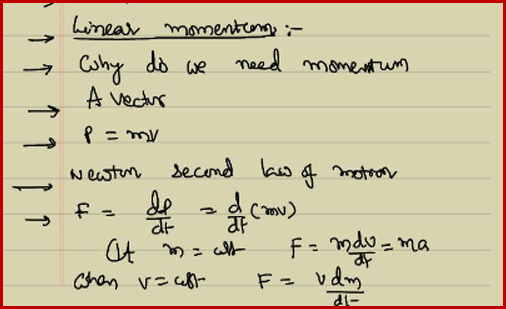 → Linear momentum :-
→ Why do we need momentum
→ A vector
→ P = mv
→ Newton second law of motion
→ F = dp/dt = d/dt (mv)
If m = cst F = mdv/dt = ma
when v = cst F = vdm/dt